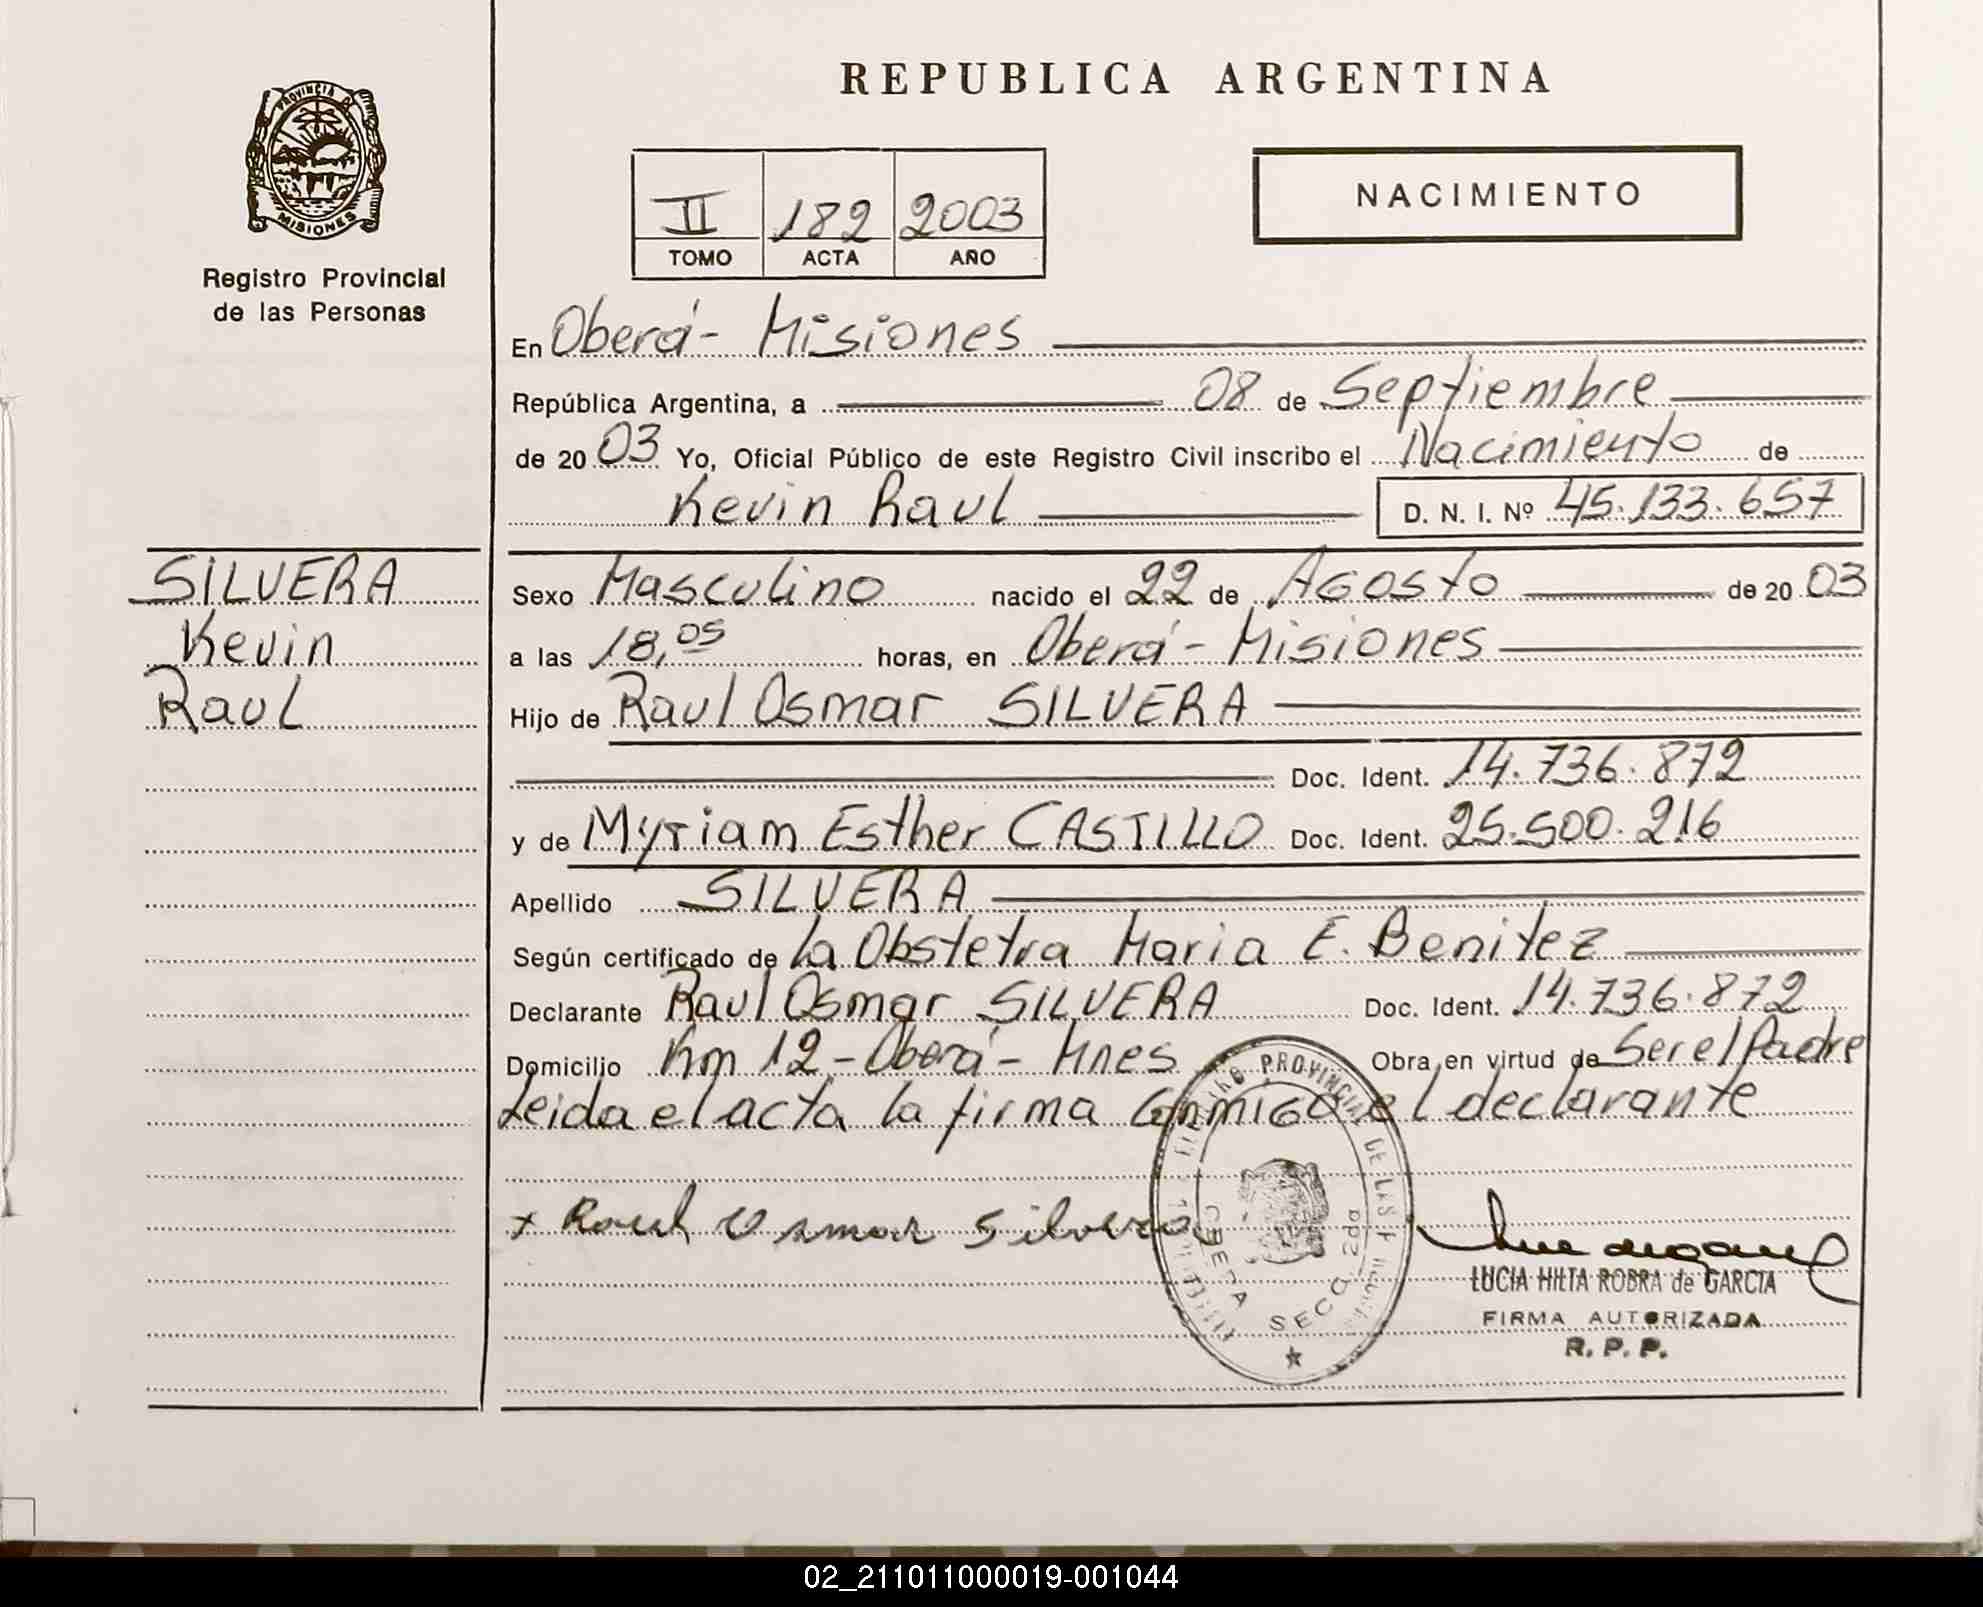 REPUBLICA ARGENTINA
PROVINCIA DE
MISIONES
Registro Provincial
de las Personas
II 182 2003
TOMO ACTA AÑO
NACIMIENTO
En Oberá - Misiones
República Argentina, a 08 de Septiembre
de 2003 Yo, Oficial Público de este Registro Civil inscribo el Nacimiento de
Kevin Raul D. N. I. Nº 45.133.657
SILVERA
Kevin
Raul
Sexo Masculino nacido el 22 de Agosto de 2003
a las 18,05 horas, en Oberá - Misiones
Hijo de Raul Osmar SILVERA
Doc. Ident. 14.736.872
y de Myriam Esther CASTILLO Doc. Ident. 25.500.216
Apellido SILVERA
Según certificado de la Obstetra Maria E. Benitez
Declarante Raul Osmar SILVERA Doc. Ident. 14.736.872
Domicilio Km 12 - Oberá - Mnes Obra en virtud de Ser el Padre
Leida el acta la firma Conmigo el declarante
x Raul Osmar Silvera
PROVINCIAL DE LAS
OBERA SECC. 2da
LUCIA HILTA ROBRA de GARCIA
FIRMA AUTORIZADA
R. P. P.
02_211011000019-001044